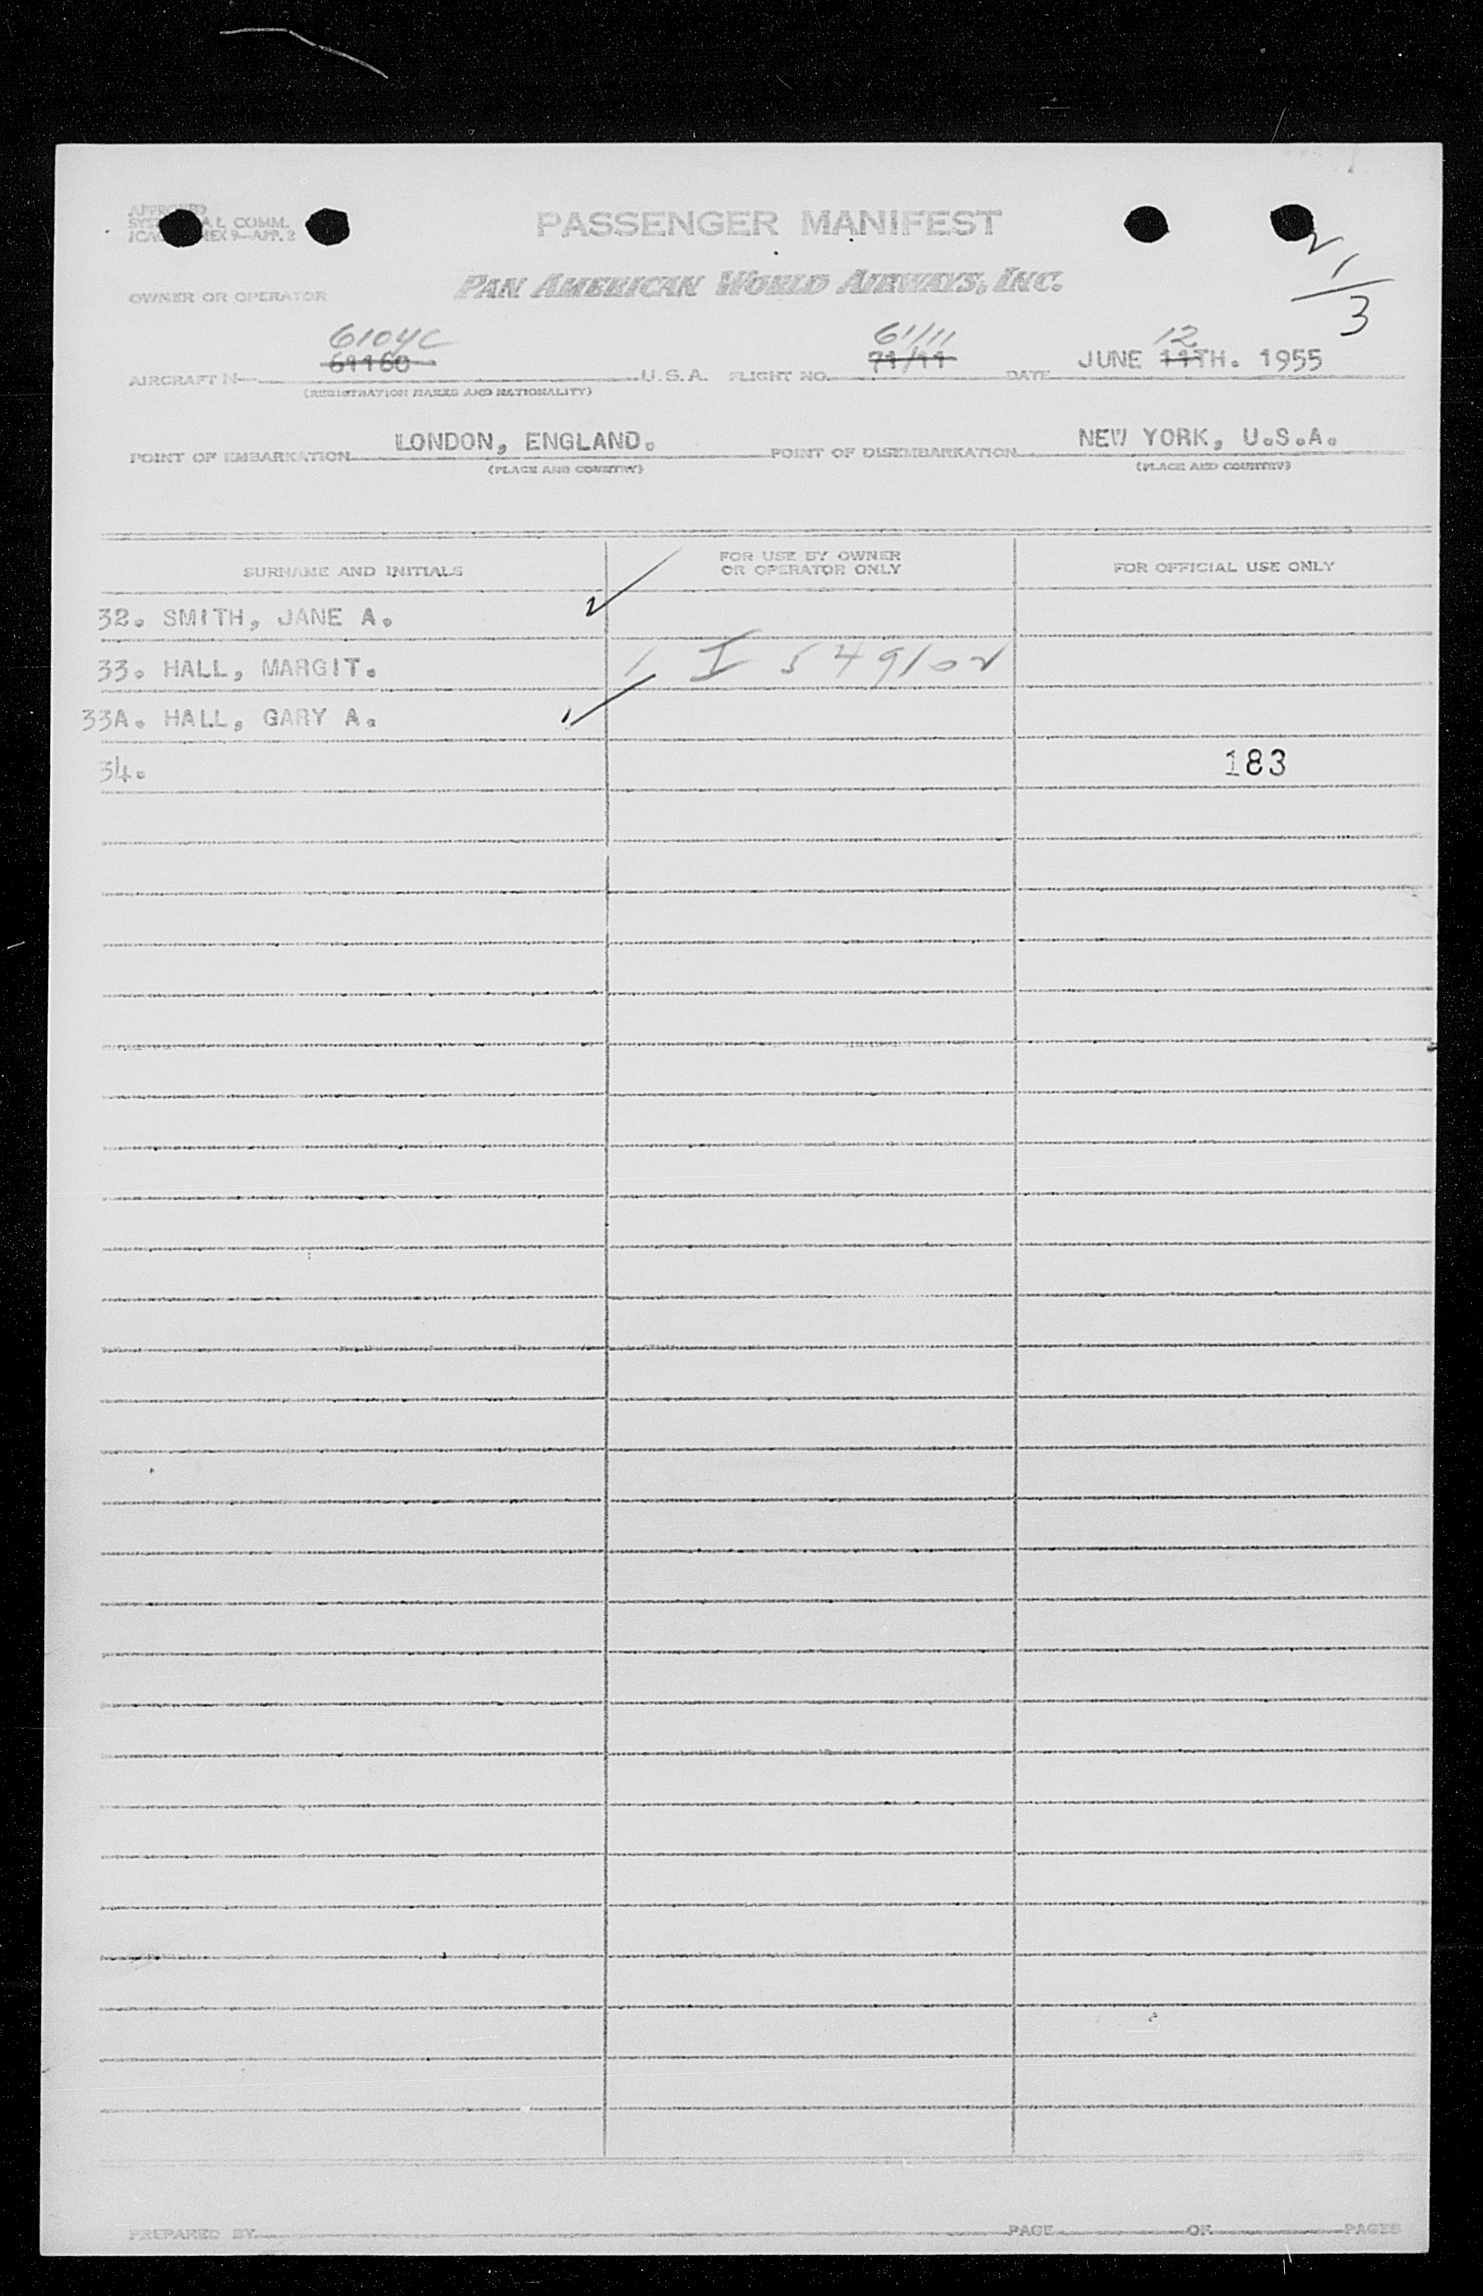 APPROVED
COMM.
9—APP. 2
PASSENGER MANIFEST
PAN AMERICAN WORLD AIRWAYS, INC.
OWNER OR OPERATOR
2 1/3
6104C 61/11 12
61160 71/11 JUNE 11TH. 1955
AIRCRAFT N— U.S.A. FLIGHT NO. DATE
(REGISTRATION MARKS AND NATIONALITY)
LONDON, ENGLAND. NEW YORK, U.S.A.
POINT OF EMBARKATION POINT OF DISEMBARKATION
(PLACE AND COUNTRY) (PLACE AND COUNTRY)
SURNAME AND INITIALS FOR USE BY OWNER OR OPERATOR ONLY FOR OFFICIAL USE ONLY
32. SMITH, JANE A.
33. HALL, MARGIT. 1 I 549102
33A. HALL, GARY A.
34. 183
PREPARED BY PAGE OF PAGES